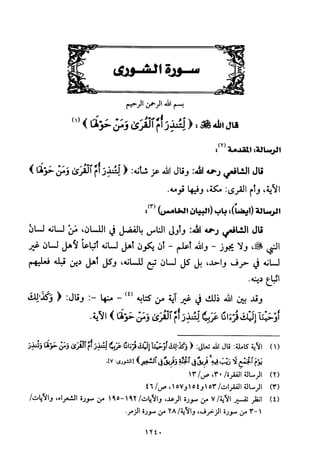 سورة الشورى
بسم الله الرحمن الرحيم
قال الله ﷻ: ﴿ لِّتُنذِرَ أُمَّ ٱلْقُرَىٰ وَمَنْ حَوْلَهَا ﴾ (١)
الرسالة: المقدمة (٢):
قال الشافعي رحمه الله: وقال الله عز شأنه: ﴿ لِّتُنذِرَ أُمَّ ٱلْقُرَىٰ وَمَنْ حَوْلَهَا ﴾
الآية، وأم القرى: مكة، وفيها قومه.
الرسالة (أيضاً): باب (البيان الخامس) (٣):
قال الشافعي رحمه الله: وأولى الناس بالفضل في اللسان، مَنْ لسانه لسانُ
النبي ﷺ، ولا يجوز - والله أعلم - أن يكون أهل لسانه أتباعاً لأهل لسان غير
لسانه في حرف واحد، بل كل لسان تبع للسانه، وكل أهل دين قبله فعليهم
اتباع دينه.
وقد بين الله ذلك في غير آية من كتابه (٤) - منها -: وقال: ﴿ وَكَذَٰلِكَ
أَوْحَيْنَآ إِلَيْكَ قُرْءَانًا عَرَبِيًّا لِّتُنذِرَ أُمَّ ٱلْقُرَىٰ وَمَنْ حَوْلَهَا ﴾ الآية.
(١) الآية كاملة: قال الله تعالى: ﴿ وَكَذَٰلِكَ أَوْحَيْنَآ إِلَيْكَ قُرْءَانًا عَرَبِيًّا لِّتُنذِرَ أُمَّ ٱلْقُرَىٰ وَمَنْ حَوْلَهَا وَتُنذِرَ
يَوْمَ ٱلْجَمْعِ لَا رَيْبَ فِيهِ ۚ فَرِيقٌ فِى ٱلْجَنَّةِ وَفَرِيقٌ فِى ٱلسَّعِيرِ ﴾ [الشورى: ٧].
(٢) الرسالة الفقرة/ ٣٠، ص/ ١٣
(٣) الرسالة الفقرات/ ١٥٣ و١٥٤ و١٥٧، ص/ ٤٦
(٤) انظر تفسير الآية/ ٧ من سورة الرعد، والآيات/ ١٩٢-١٩٥ من سورة الشعراء، والآيات/
١-٣ من سورة الزخرف، والآية/ ٢٨ من سورة الزمر.
١٢٤٠